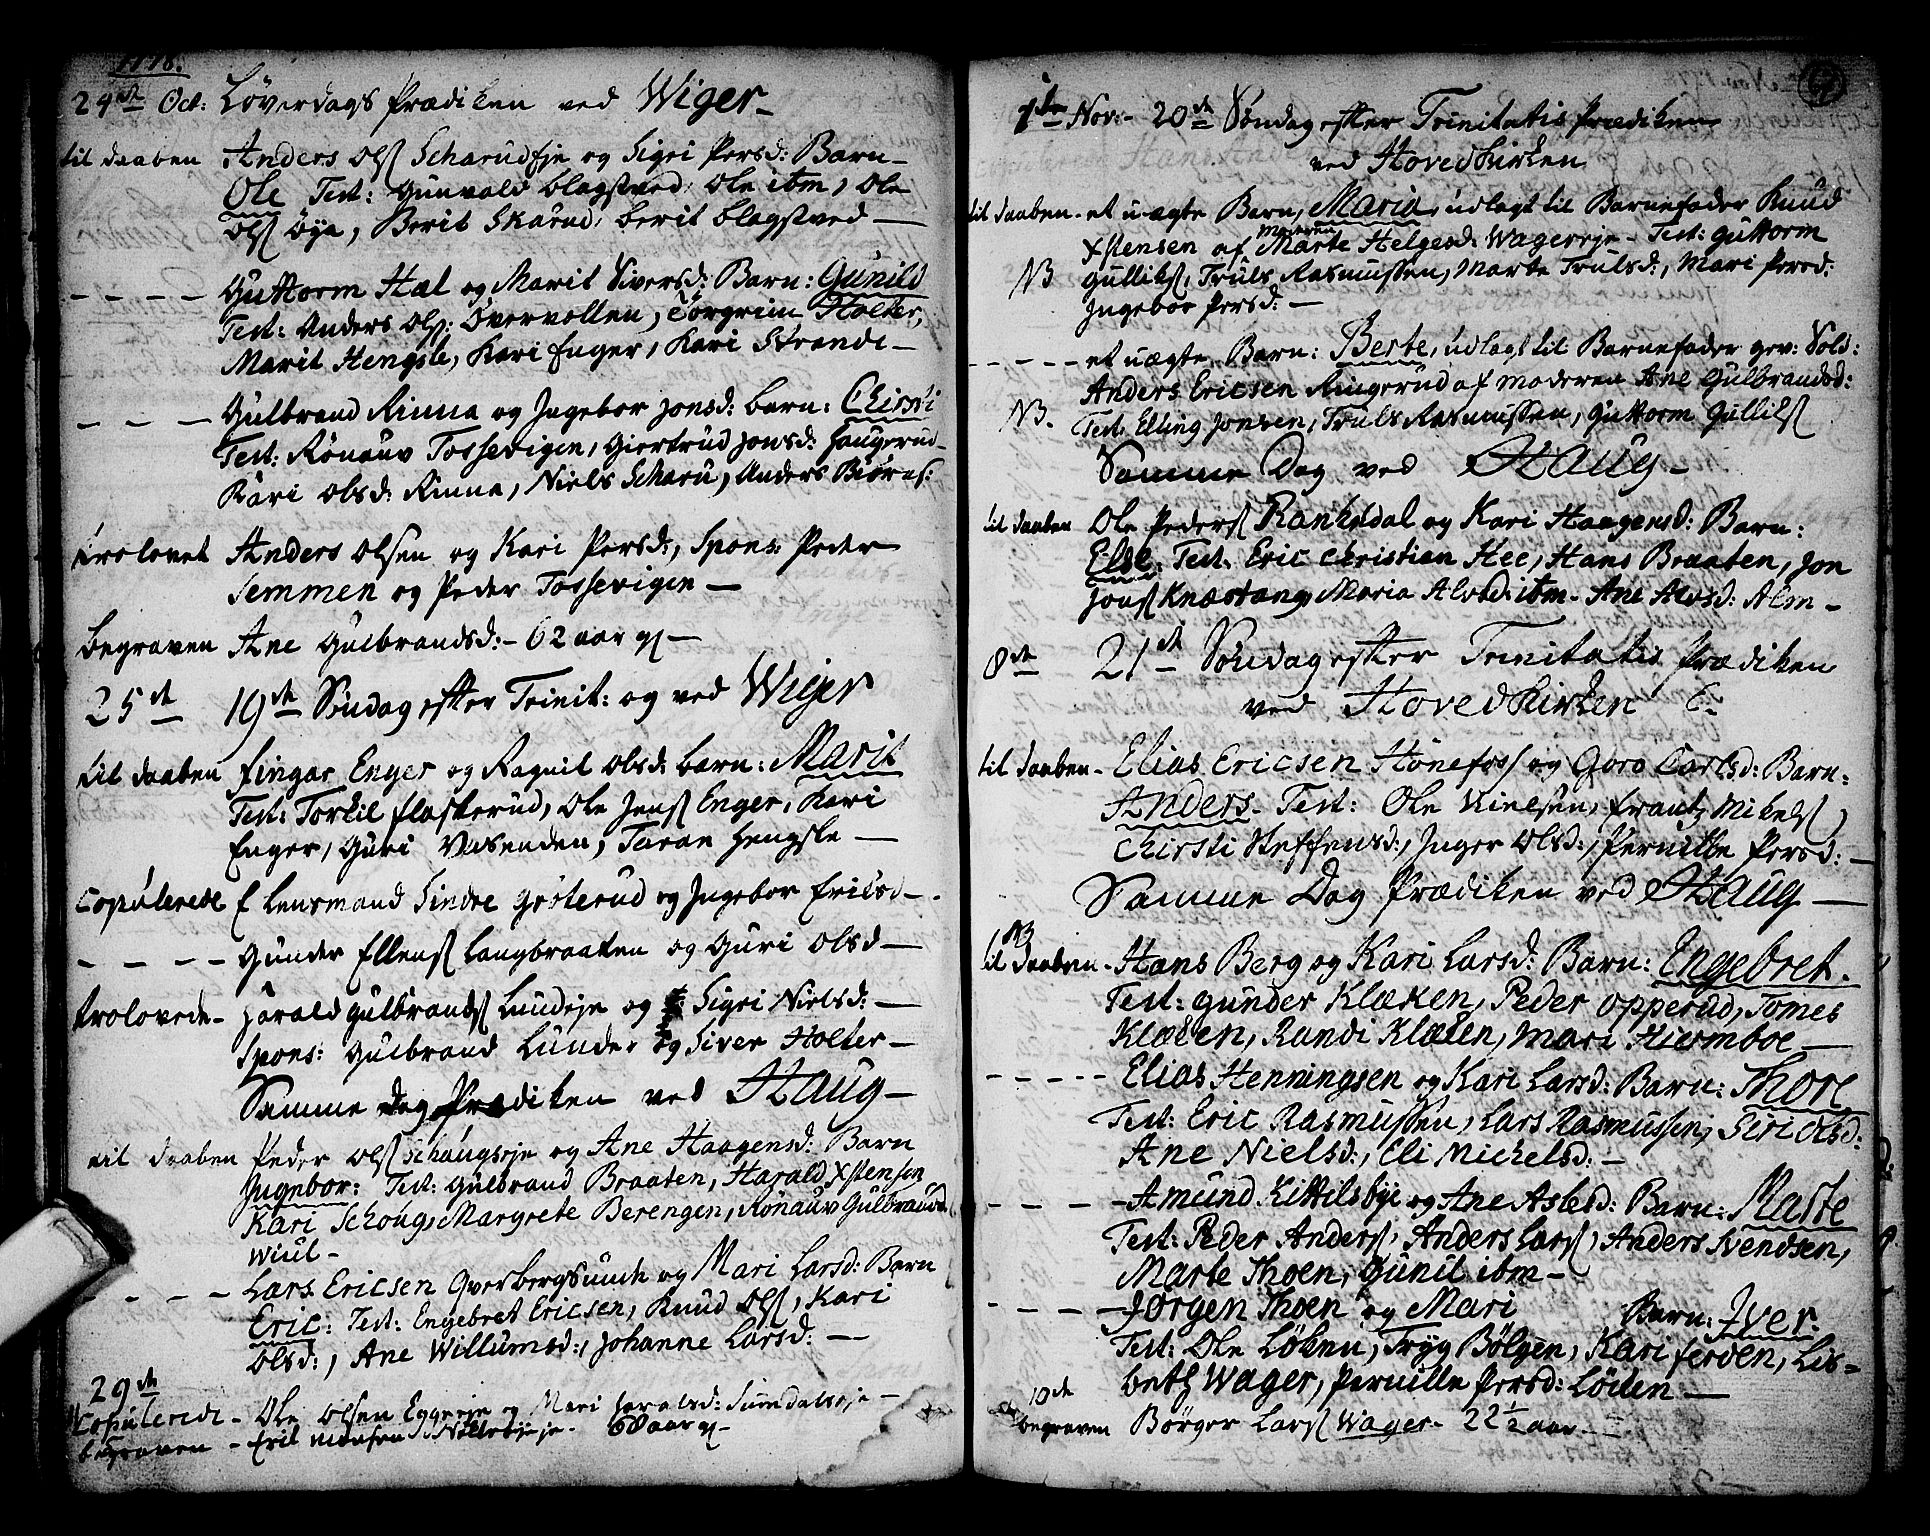 1778.
24de Oct: Løverdags Prædiken ved Wiger
til daaben Anders Ols Scharudeje og Sigri Persd: Barn
Ole Test: Gunvald Blagstved, Ole ibm, Ole
Ols Øya, Berit Skarud, berit blagstved
Guttorm Hæl og Marit Siversd: Barn: Gunild
Test: Anders Ols: Øvervollen, Torgrim Holter,
Marit Hengsle, Kari Enger, Kari Strande
Gulbrand Rinna og Ingebor Jonsd: barn: Chirsti
Test: Rønauv Tossevigen, Giertrud Jonsd: Haugerud
Kari Olsd: Rinna, Niels Scharu, Anders Biørns:
trolovet Anders Olsen og Kari Persd:, Spons: Peder
Semmen og Peder Tossevigen
begraven Ane Gulbrandsd: 62 aar gl
25de 19de Søndag efter Trinit: og ved Wiger
til daaben fingar Enger og Ragnil Olsd: barn: Marit
Test: Torkil flaskerud, Ole Jens Enger, Kari
Enger, Guri Vasenden, Taran Hengsle
Copulerede Lensmand Sindre Grøterud og Ingebor Eriksd
Gunder Ellens Langbraaten og Guri Olsd
trolovede Harald Gulbrands Lundeje og Sigri Nielsd:
Spons: Gulbrand Lunde og Siver Holter
Samme Dag Prædiken ved Haug
til daaben Peder Ols Schougseje og Ane Haagensd: Barn
Ingebor: Test: Gulbrand Braaten, Harald Xstensen
Kari Schoug, Margrete Berengen, Rønauv Gulbrandsd
Wiul
Lars Ericsen Qverbergsunde og Mari Larsd: Barn
Eric: Test: Engebret Ericsen, Knud Ols, Kari
Olsd:, Ane Willumsd:, Johanne Larsd:
29de
Copulerede Ole Olsen Eggeeje og Mari Haralsd: Sundalseje
begraven Erik Monsen 60 aar gl
1de Nov: 20de Søndag efter Trinitatis Prædiken
ved Hovedkirken
til daaben et uægte Barn, Maria, udlagt til Barnefader Knud
Xstensen af moderen Marte Helgesd: Wagerseje Test: Guttorm
NB Gulliks, Truls Rasmussen, Marte Trulsd:, Mari Persd:
Ingebor Persd:
et uægte Barn: Berte, udlagt til Barnefader gev: Sold:
Anders Ericsen Ringerud af moderen Ane Gulbrandsd:
NB. Test: Elling Jonsen, Truls Rasmussen, Guttorm Gulliks
Samme Dag ved Haug
til daaben Ole Peders Ranhsdal og Kari Haagensd: Barn:
Else. Test: Eric Christian Hee, Hans Braaten, Jon
Jons Knæstang Maria Alvsd: ibm Ane Alvsd: Alm
8de 21de Søndag efter Trinitatis Prædiken
ved Hovedkirken
til daaben Elias Ericsen Hønefos og Goro Carlsd: Barn:
Anders. Test: Ole Nielsen, Frantz Mikels,
Chirsti Steffensd:, Inger Olsd:, Pernille Persd:
Samme Dag Prædiken ved Haug
NB
til daaben Hans Berg og Kari Larsd: Barn: Engebret.
Test: Gunder Klæken, Peder Opperud, Tomes
Klæken, Randi Klæken, Mari Hiermboe
Elias Henningsen og Kari Larsd: Barn: Thore
Test: Eric Rasmussen, Lars Rasmussen, Siri Olsd:
Ane Nielsd:, Eli Michelsd:
Amund Kittilsbye og Ane Aslesd: Barn: Marte
Test: Peder Anders, Anders Lars, Anders Svendsen,
Marte Thoen, Gunil ibm
Jørgen Thoen og Mari Barn: Iver.
Test: Ole Løken, Tryg Bølgen, Kari ferden, Lis-
beth Wager, Pernille Persd: Løken
10de
begraven Børger Lars Wager 22 1/2 aar